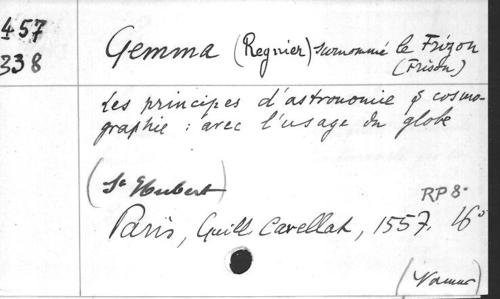 457
338
Gemma (Regnier) surnommé le Frizon
(Frison)
Les principes d'astronomie & cosmo-
graphie : avec l'usage du globe
(St Hubert)
RP 8-
Paris, Guill Cavellat, 1557. 16°
(Namur)